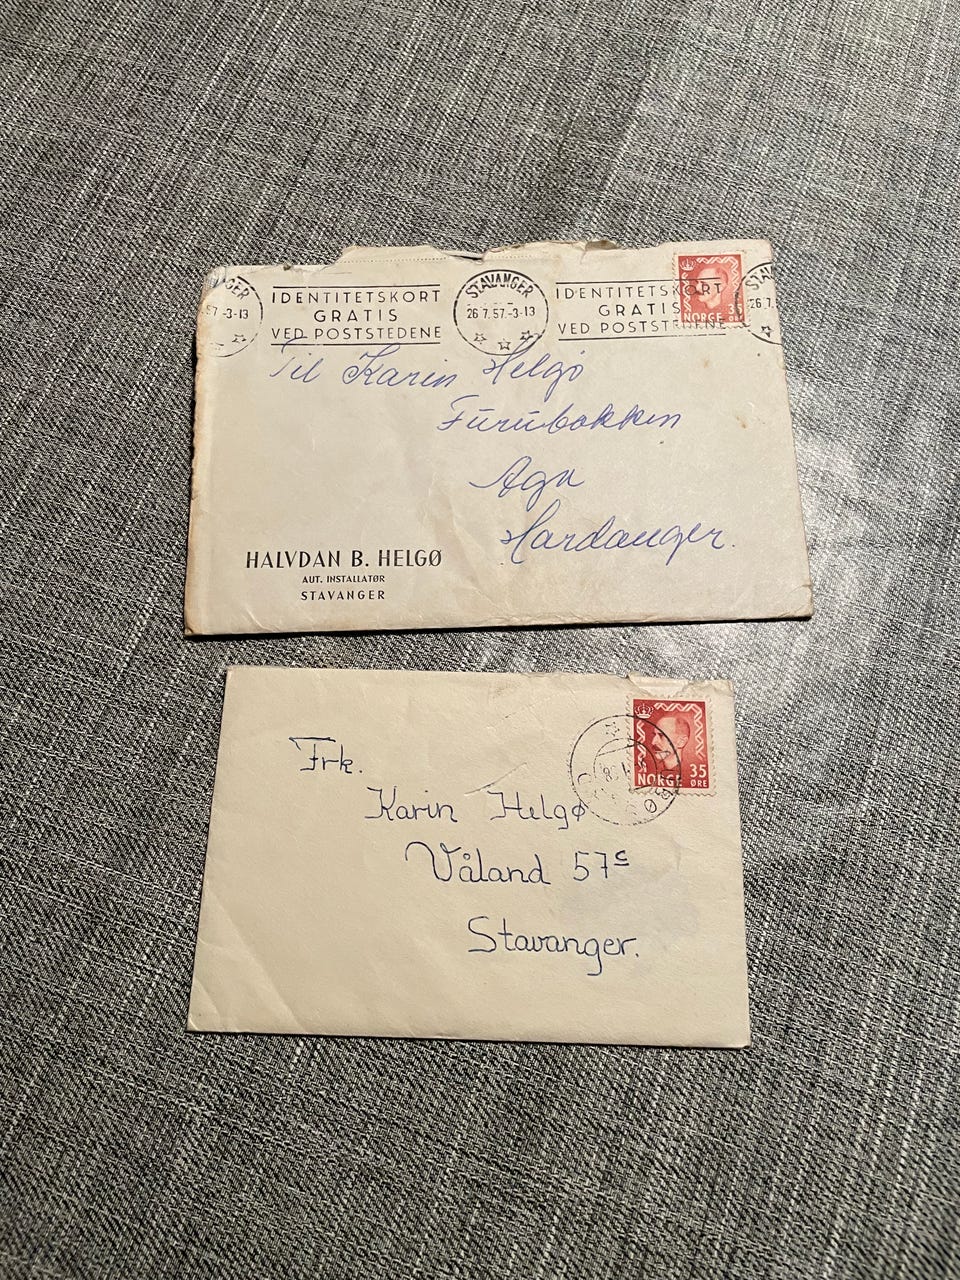 GER
57.-3-13
IDENTITETSKORT
GRATIS
VED POSTSTEDENE
STAVANGER
26.7.57.-3-13
IDENTITETSKORT
GRATIS
VED POSTSTEDENE
NORGE 35
ØRE
STA
26.7.
Til Karin Helgø
Furubakken
Aga
Hardanger.
HALVDAN B. HELGØ
AUT. INSTALLATØR
STAVANGER
NORGE 35
ØRE
Frk.
Karin Helgø
Våland 57c
Stavanger.